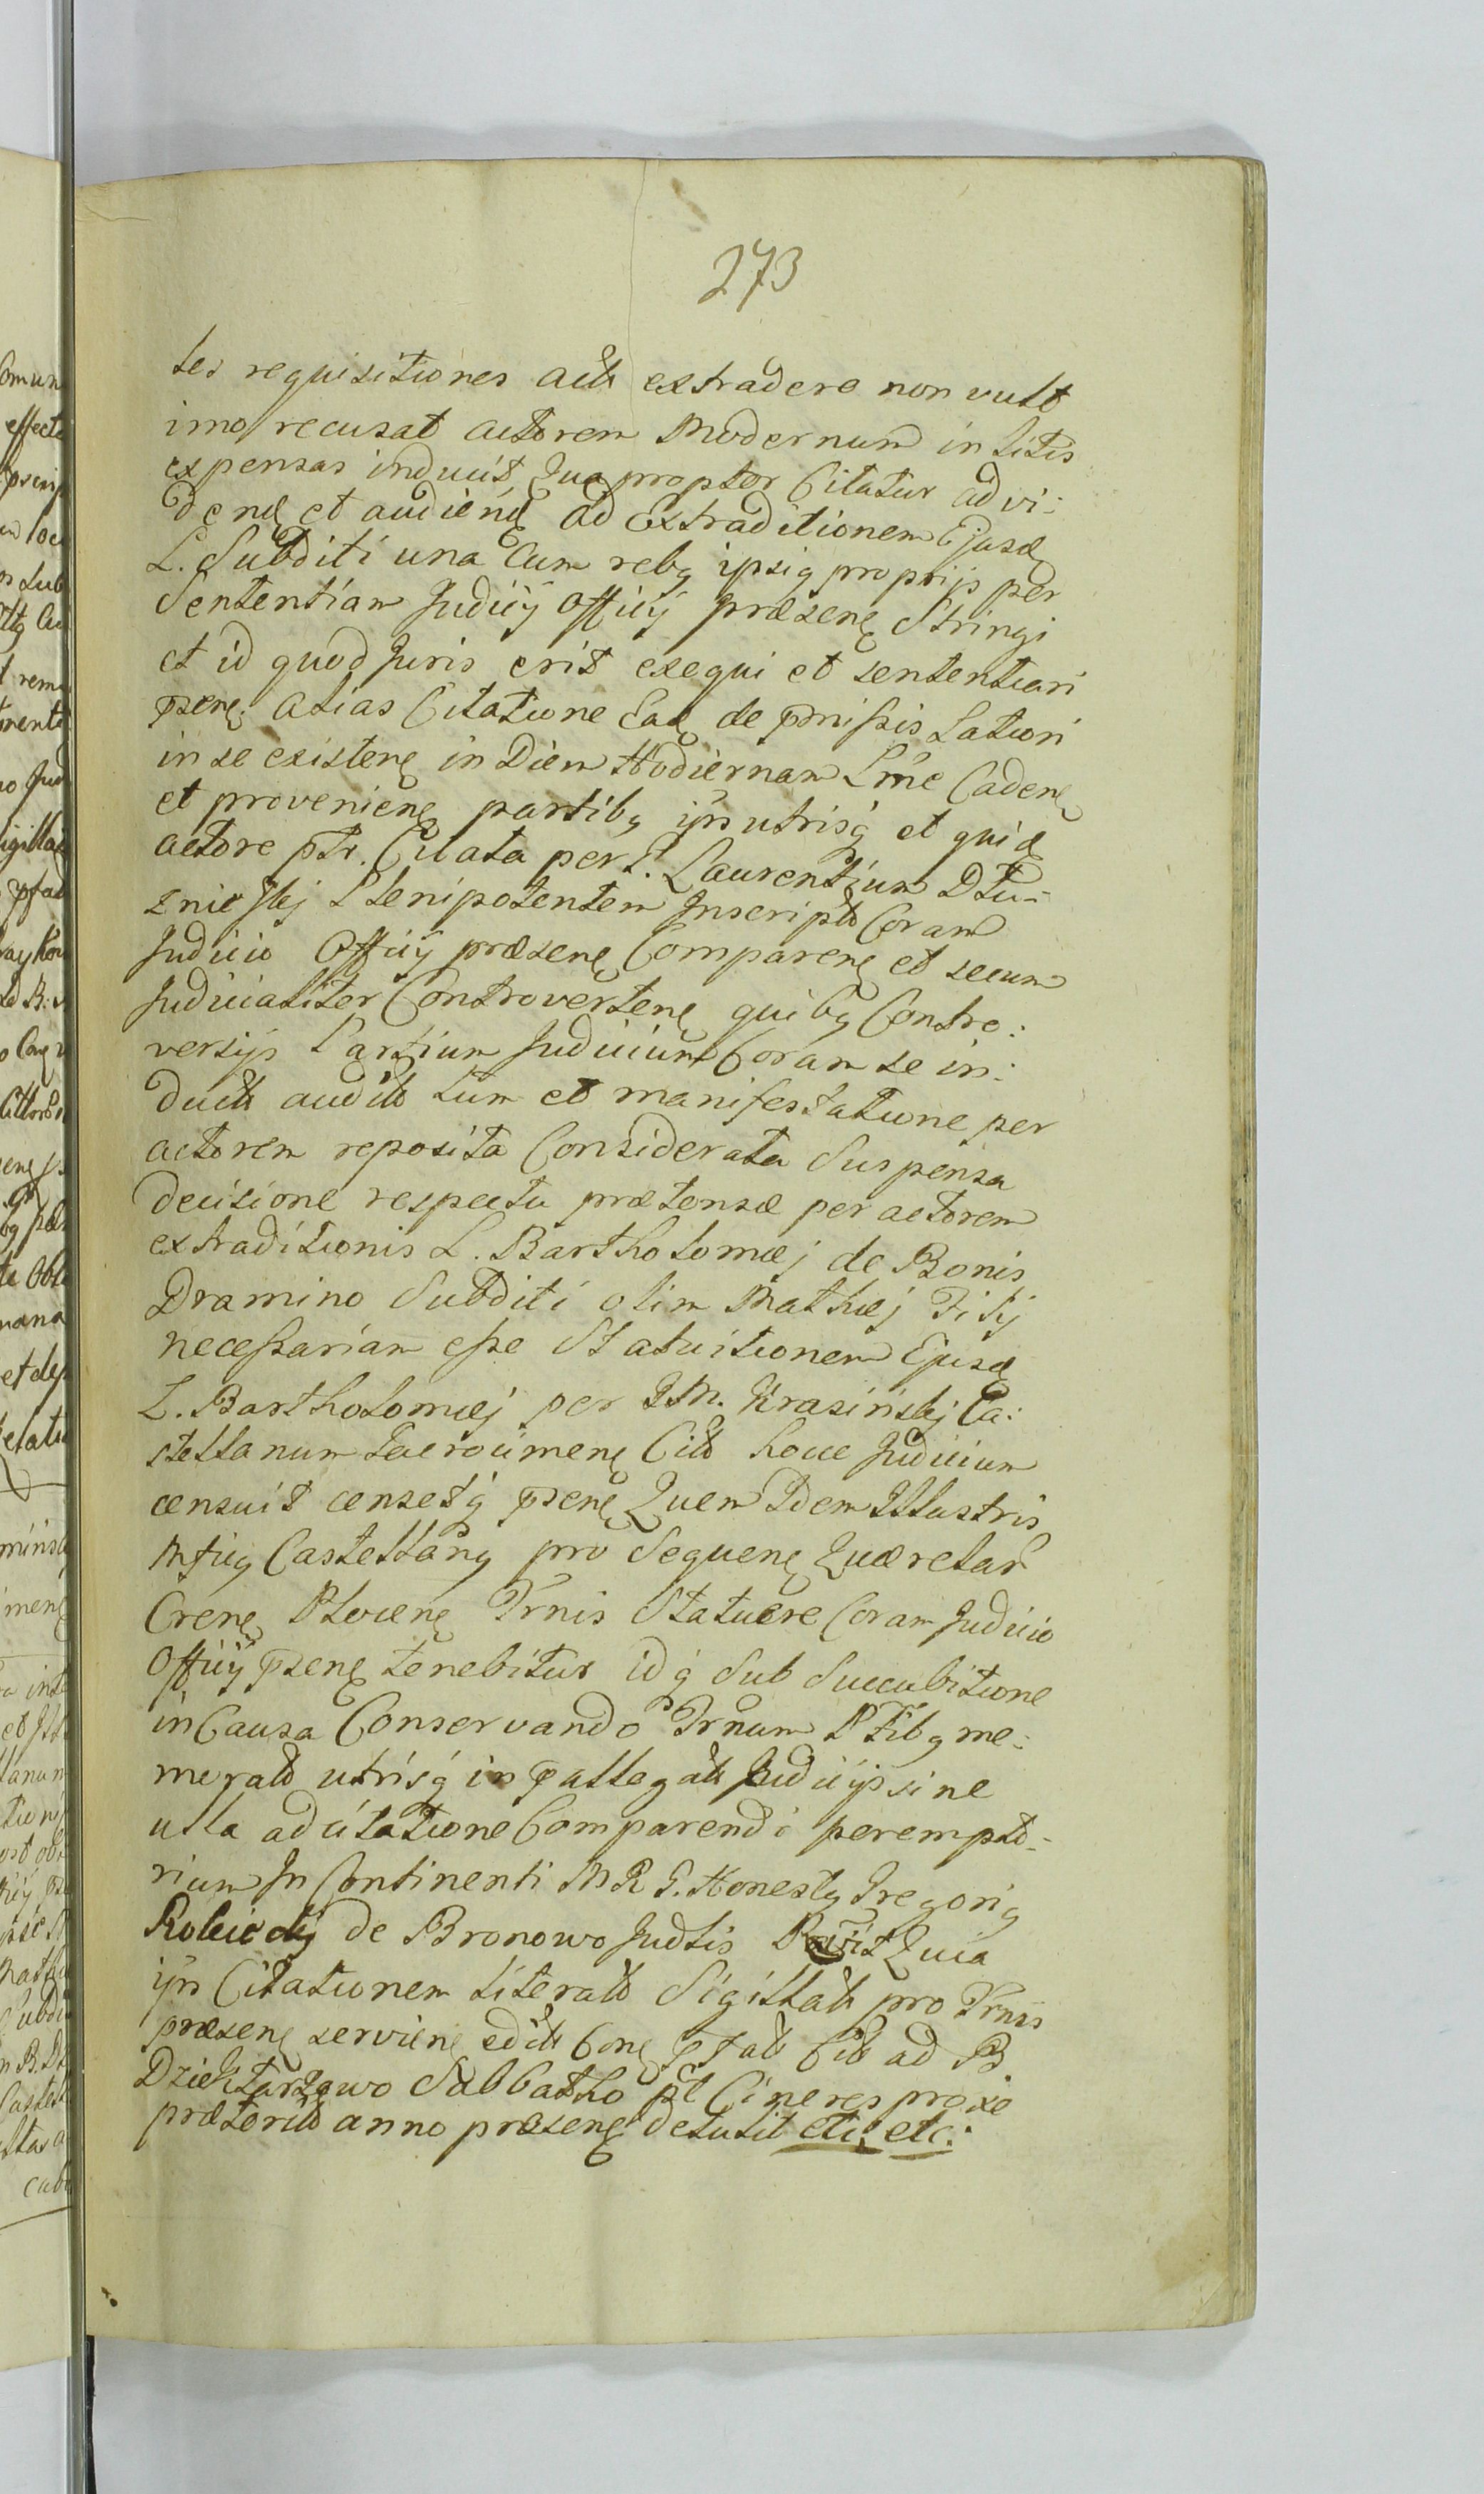 273
les requisitiones actus extradere non vult
imo recusat actorem Modernum in litis
expensas inducit Qua propter Citatur ad vi:
dend et audiend ad Extraditionem Ejusd
L. Subditi una Cum rebq ipsiq proprijs per
Sententiam Judicij Officij præsenę Stringi
et id quod Juris erit exequi et sententiari
pzenę. Alias Citatione Ead de pmißis Latiori
in se existenę in Diem Hodiernam Lme Cadenę
et provenienę partibq ijs utrisq et quid
actore ptr. Citata per L. Laurentium Dłu-
zniewskj Plenipotentem Inscript Coram
Judicio Officij præsenę Comparenę et secum
Judicialiter Controvertenę quibq Contro:
versijs Partium Judicium Coram se in:
ductis auditis tum et manifestatione per
actorem reposita Considerata Suspensa
decisione respectu prætensæ per actorem
extraditionis L. Bartholomæj de Bonis
Dramino Subditi olim Mathæj Filij
neceßariam eße Statuitionem Ejusd
L. Bartholomæj per I M. Krasinskj Ca:
stellanum Sacroumenę Citt hocce Judicium
censuit censetq pzenę Quem Idem Illustris
Mficq Castellanq pro Sequenę Quærelar
Crenę Plocenę Trnis Statuere Coram Judicio
Officij pzenę tenebitur idq Sub Succubitione
in Causa Conservando Trnum Ptibq me:
meratis utrisq in pallegatis Judicijs sine
ulla adcitatione Comparendi perempto-
rium In Continenti M R G. Honestq Gregoriq
de Bronowo Judlis Quia
ijs Citationem literatt Sigillatt pro Trnis
præsenę servienę editt Conę Citt ad B
Dziektarzewo Sabbatho pt Cineres proxe
præteritt anno præsenę detulit etc. etc: